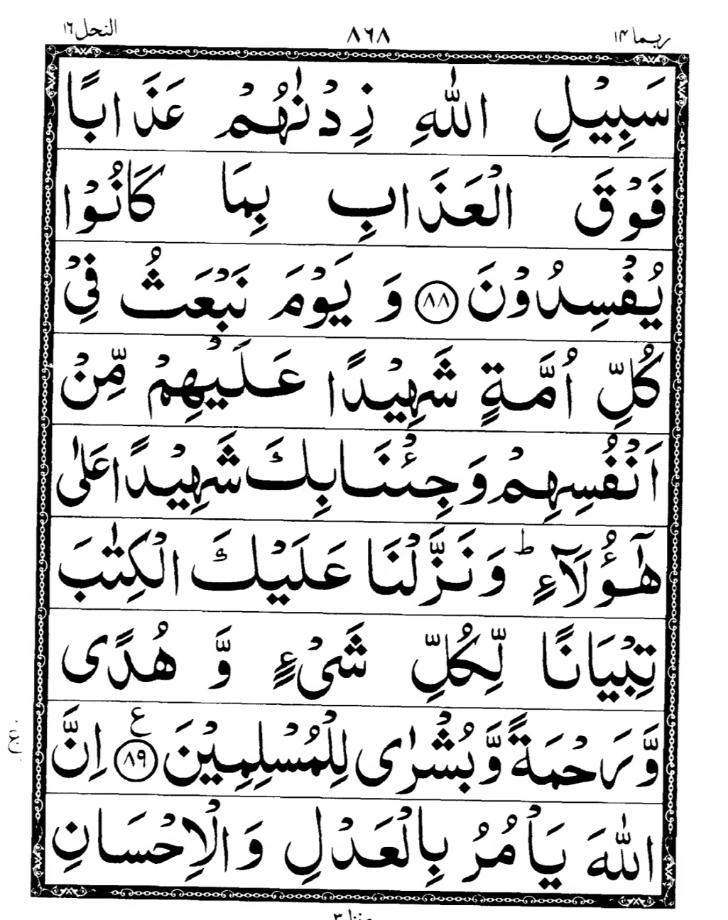 ربما ١٤ ٨٦٨ النحل ١٦
سَبِيْلِ اللّٰهِ زِدْنٰهُمْ عَذَابًا
فَوْقَ الْعَذَابِ بِمَا كَانُوْا
يُفْسِدُوْنَ ﴿٨٨﴾ وَ يَوْمَ نَبْعَثُ فِيْ
كُلِّ اُمَّةٍ شَهِيْدًا عَلَيْهِمْ مِّنْ
اَنْفُسِهِمْ وَجِئْنَا بِكَ شَهِيْدًا عَلٰى
هٰٓؤُلَآءِ ؕ وَنَزَّلْنَا عَلَيْكَ الْكِتٰبَ
تِبْيَانًا لِّكُلِّ شَيْءٍ وَّ هُدًى
وَّرَحْمَةً وَّبُشْرٰى لِلْمُسْلِمِيْنَ ﴿٨٩﴾ ع اِنَّ
اللّٰهَ يَاْمُرُ بِالْعَدْلِ وَالْاِحْسَانِ